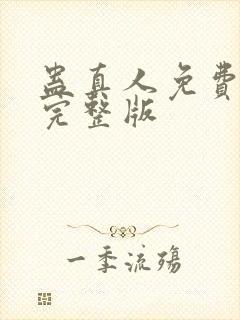 蛊真人免费
完整版
一季流殇